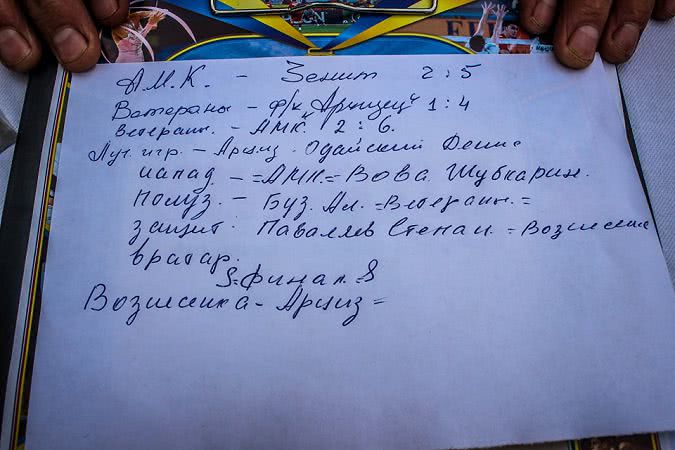 А.М.К. - Зенит 2:5
Ветераны - ф/к "Арцизец" 1:4
Ветеран. - АМК. 2:6.
Луч. игр. - Арциз. Одайский Денис
напад - =АМК.= Вова Шубкарин.
полуз. - Буз. Ал. =Ветеран.=
защит: Паваляев Степан. =Вознесенк
вратар.
Финал.
Вознесенка - Арциз =